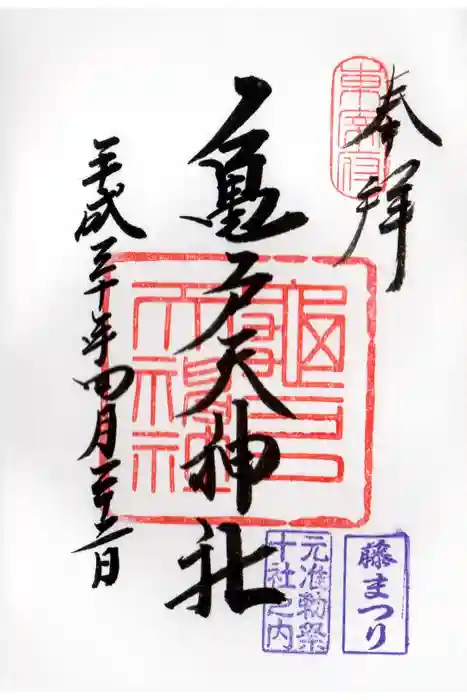 奉拝
東宰府
亀戸天神社
龜戸
天神社
平成三十年四月二十二日
藤まつり
元准勅祭
十社之内